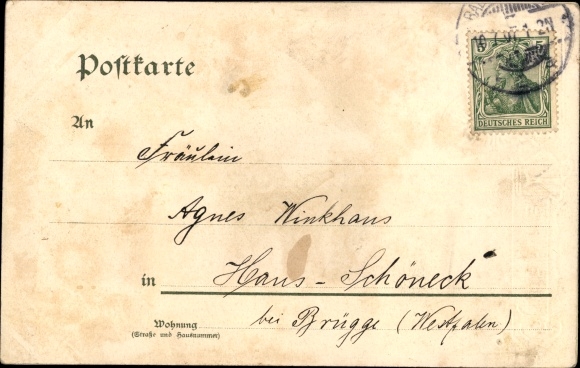 Postkarte
5 5
DEUTSCHES REICH
An
Fräulein
Agnes Winkhaus
in Haus-Schöneck
bei Brügge (Westfalen)
Wohnung
(Straße und Hausnummer)